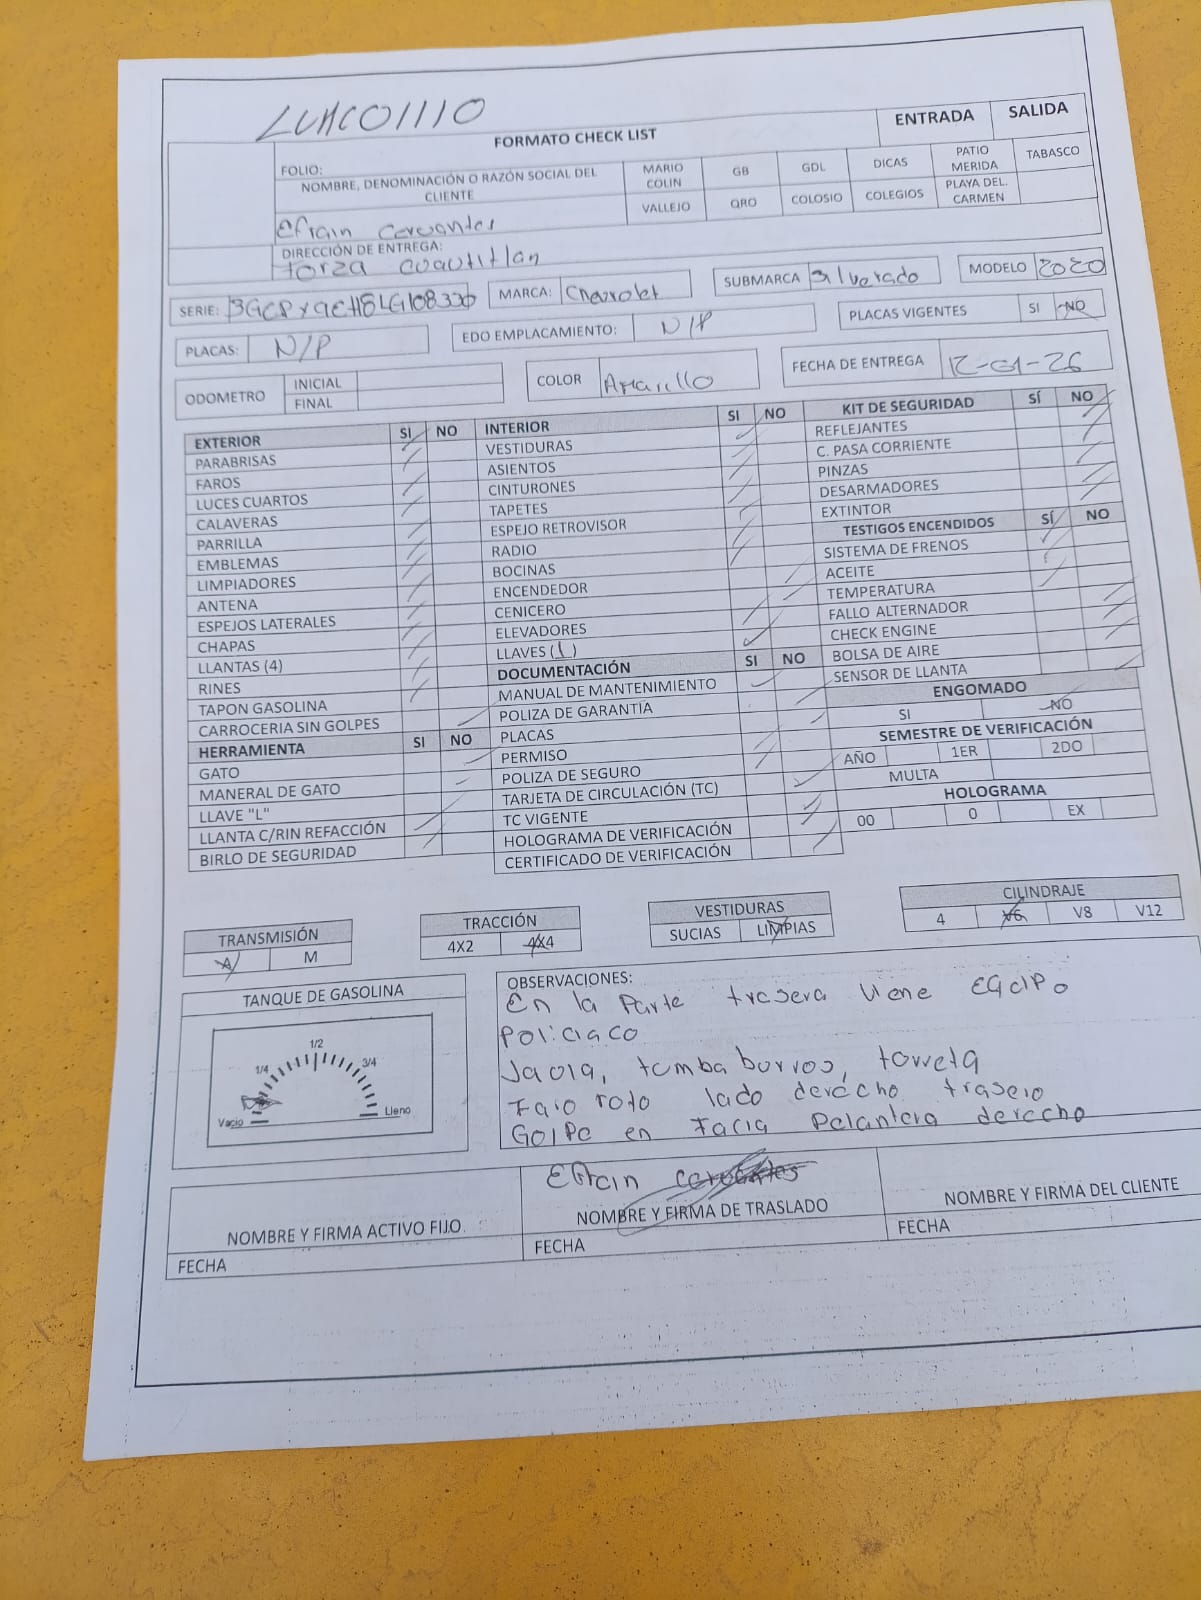 LUACO1110
FORMATO CHECK LIST
ENTRADA SALIDA
FOLIO:
NOMBRE, DENOMINACIÓN O RAZÓN SOCIAL DEL CLIENTE
MARIO COLIN GB GDL DICAS PATIO MERIDA TABASCO
VALLEJO QRO COLOSIO COLEGIOS PLAYA DEL. CARMEN
Efrain Cervantes
DIRECCIÓN DE ENTREGA:
torza cuautitlan
SERIE: MARCA: Chevrolet SUBMARCA Silverado MODELO 2020
PLACAS: N/P EDO EMPLACAMIENTO: N/P PLACAS VIGENTES SI NO
ODOMETRO INICIAL FINAL COLOR Amarillo FECHA DE ENTREGA 12-01-26
EXTERIOR SI NO
PARABRISAS
FAROS
LUCES CUARTOS
CALAVERAS
PARRILLA
EMBLEMAS
LIMPIADORES
ANTENA
ESPEJOS LATERALES
CHAPAS
LLANTAS (4)
RINES
TAPON GASOLINA
CARROCERIA SIN GOLPES
HERRAMIENTA SI NO
GATO
MANERAL DE GATO
LLAVE "L"
LLANTA C/RIN REFACCIÓN
BIRLO DE SEGURIDAD
INTERIOR SI NO
VESTIDURAS
ASIENTOS
CINTURONES
TAPETES
ESPEJO RETROVISOR
RADIO
BOCINAS
ENCENDEDOR
CENICERO
ELEVADORES
LLAVES (1)
DOCUMENTACIÓN SI NO
MANUAL DE MANTENIMIENTO
POLIZA DE GARANTIA
PLACAS
PERMISO
POLIZA DE SEGURO
TARJETA DE CIRCULACIÓN (TC)
TC VIGENTE
HOLOGRAMA DE VERIFICACIÓN
CERTIFICADO DE VERIFICACIÓN
KIT DE SEGURIDAD SÍ NO
REFLEJANTES
C. PASA CORRIENTE
PINZAS
DESARMADORES
EXTINTOR
TESTIGOS ENCENDIDOS SÍ NO
SISTEMA DE FRENOS
ACEITE
TEMPERATURA
FALLO ALTERNADOR
CHECK ENGINE
BOLSA DE AIRE
SENSOR DE LLANTA
ENGOMADO
SI NO
SEMESTRE DE VERIFICACIÓN
AÑO 1ER 2DO
MULTA
HOLOGRAMA
00 0 EX
TRANSMISIÓN
A M
TRACCIÓN
4X2 4X4
VESTIDURAS
SUCIAS LIMPIAS
CILINDRAJE
4 V6 V8 V12
TANQUE DE GASOLINA
1/2
1/4 3/4
Vacio Lleno
OBSERVACIONES:
En la Parte trasera viene EQUIPo
Policiaco
Jaula, tumba burros, torreta
Faro roto lado derecho trasero
GOLPE en Facia Delantera derecho
Efrain Cervantes
NOMBRE Y FIRMA ACTIVO FIJO. NOMBRE Y FIRMA DE TRASLADO NOMBRE Y FIRMA DEL CLIENTE
FECHA FECHA FECHA